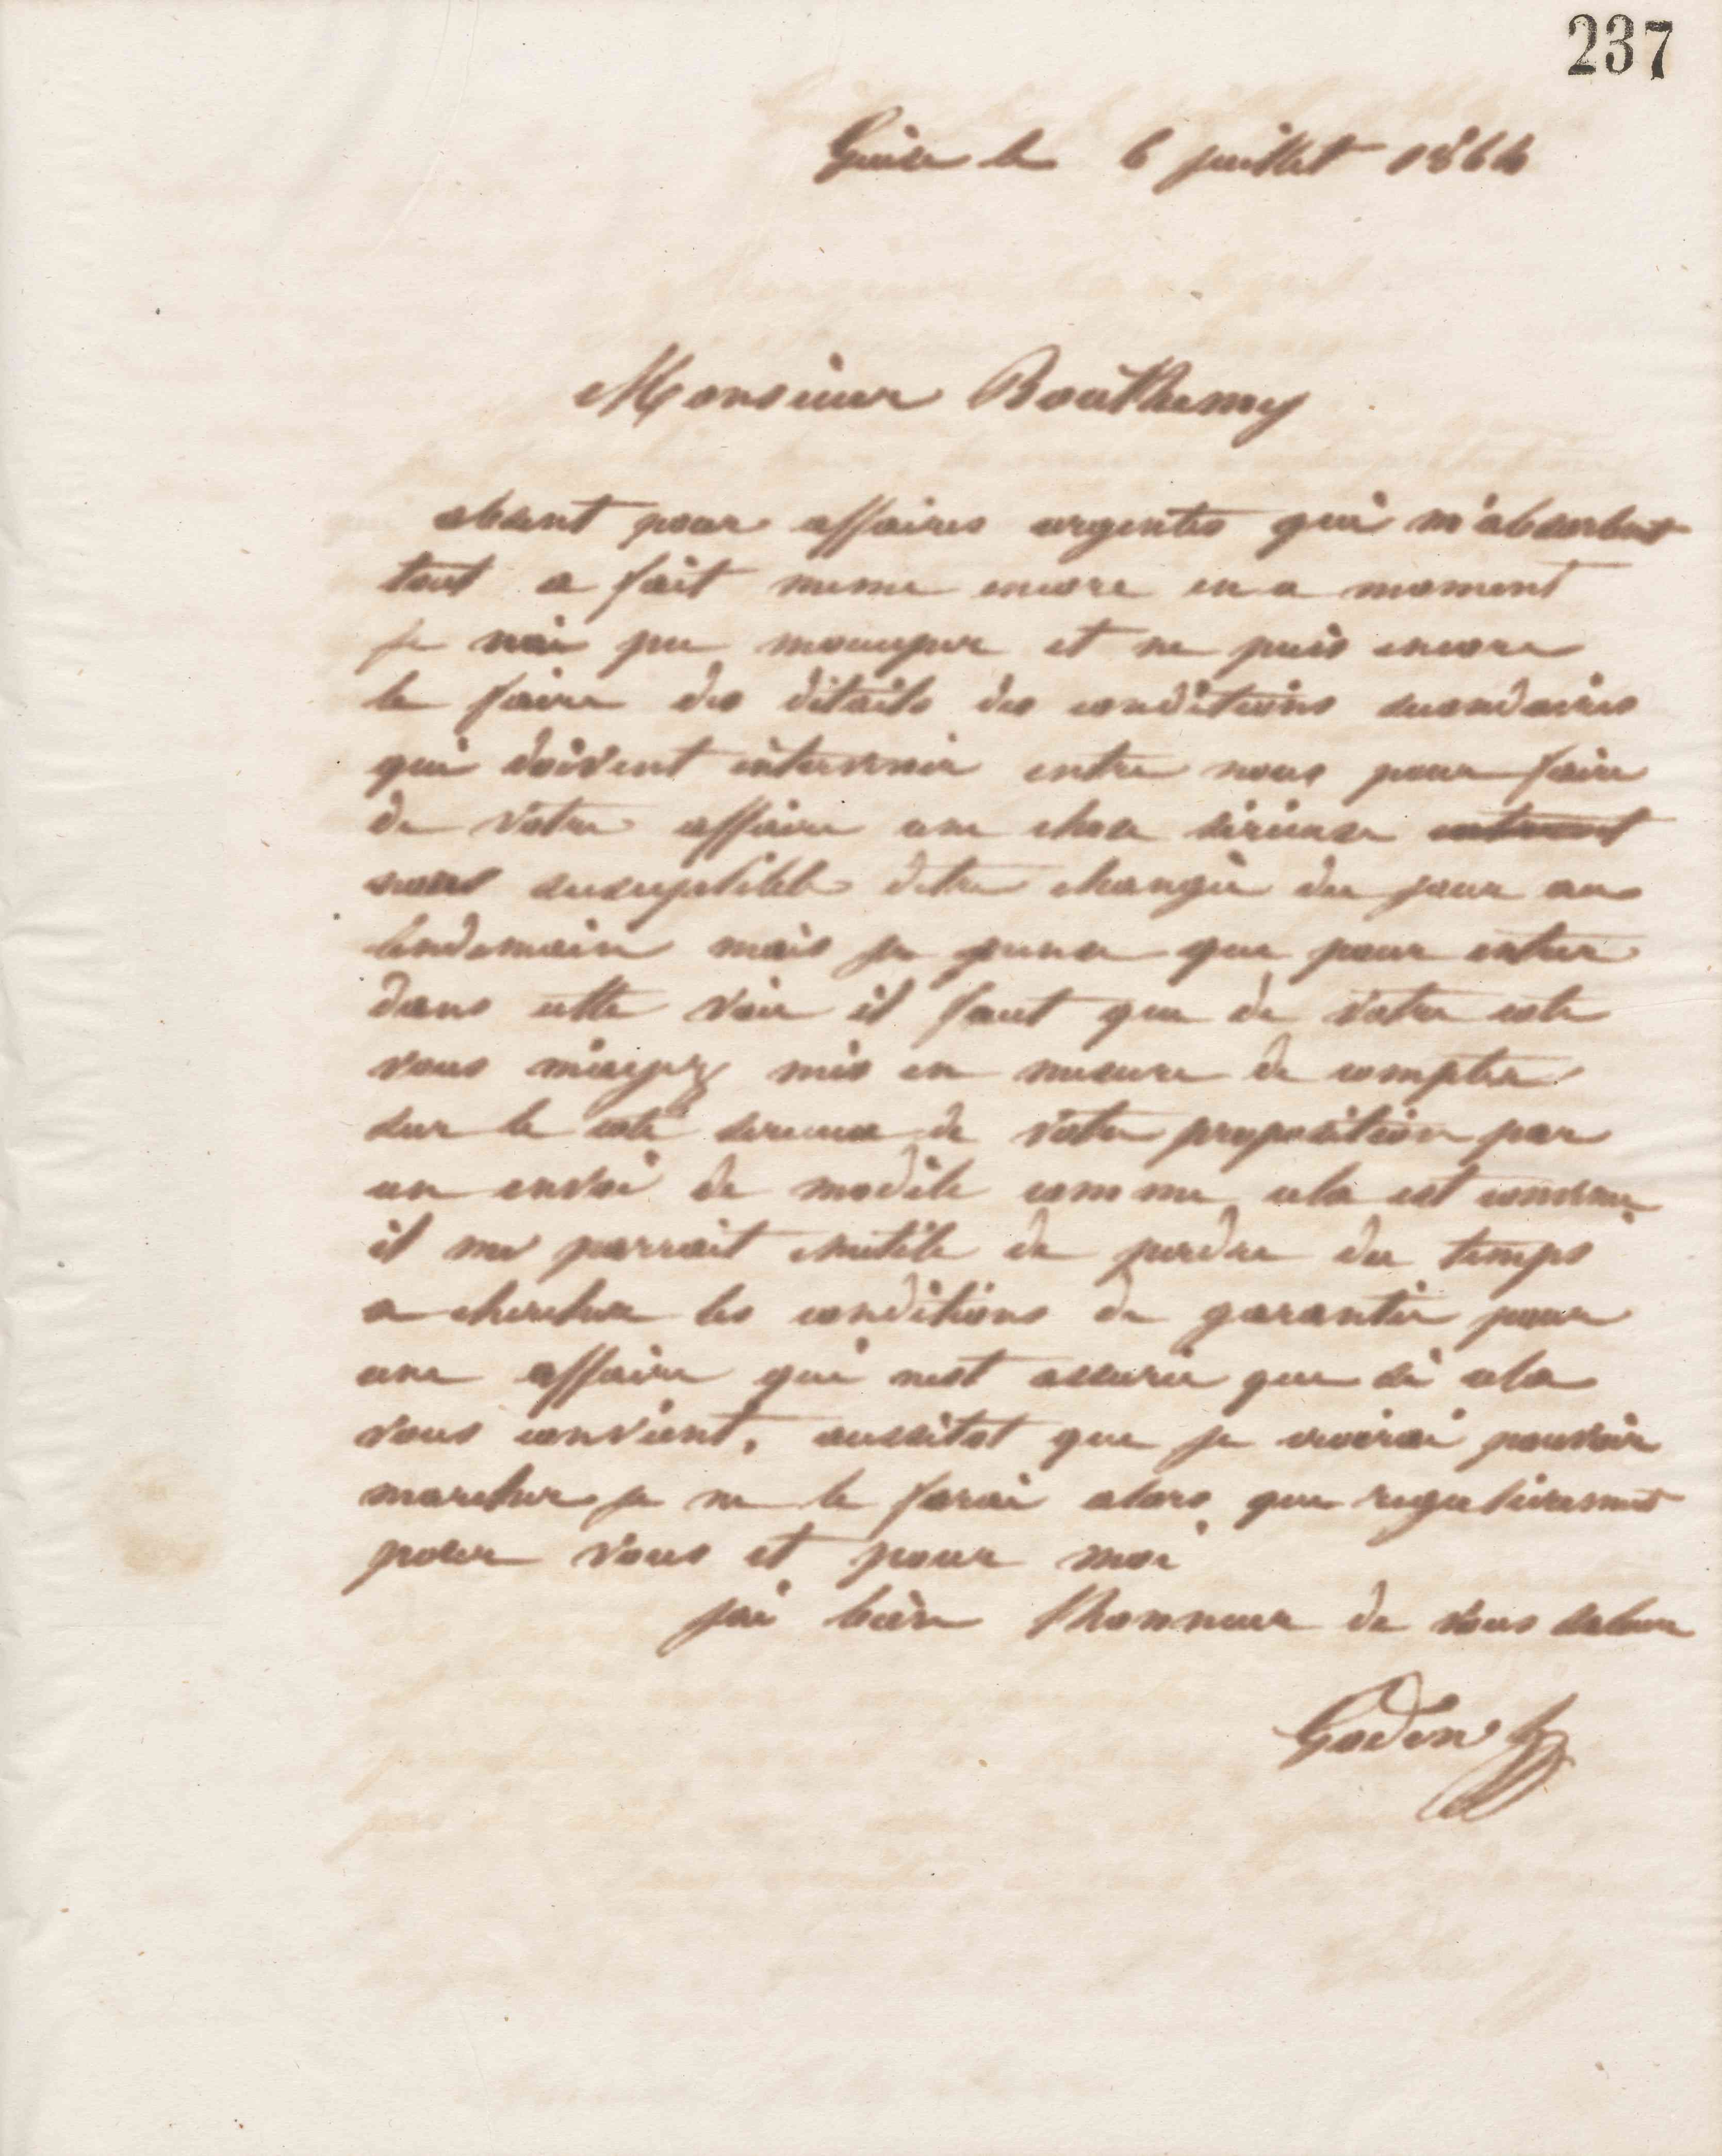 237
Guise le 6 juillet 1864
Monsieur Bouthemy
absent pour affaires urgentes qui m'absorbent
tout a fait meme encore en a moment
je nai pu moccuper et ne puis encore
le faire des détails des conditions secondaires
qui doivent intervenir entre nous pour faire
de votre affaire une chose sérieuse
susceptible detre changée du jour au
lendemain mais je pense que pour entrer
dans cette voie il faut que de votre cote
vous mayez mis en mesure de compter
sur le coté serieux de votre proposition par
un envoi de modèle comme cela est convenu
il me parrait inutile de perdre du temps
a chercher les conditions de garantie pour
une affaire qui nest assurée que si cela
vous convient. aussitot que je croirai pouvoir
marcher je ne le ferai alors que regulierement
pour vous et pour moi
jai bien lhonneur de vous saluer
Godin